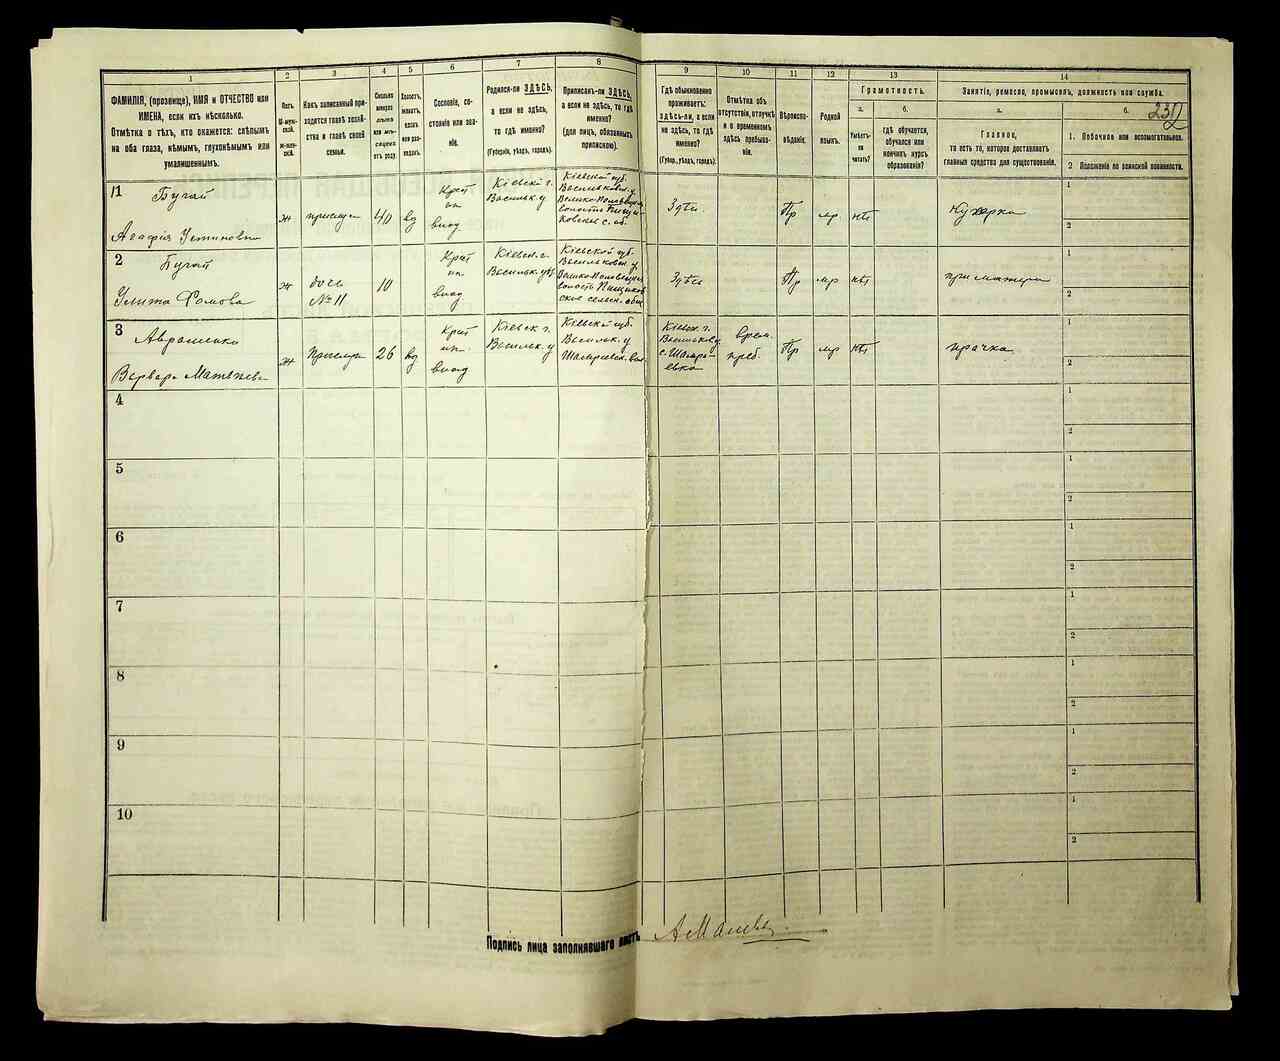 1
2
3
4
5
6
7
8
9
10
11
12
13
14
ФАМИЛІЯ, (прозвище), ИМЯ и ОТЧЕСТВО или
ИМЕНА, если ихъ нѣсколько.
Отмѣтка о тѣхъ, кто окажется: слѣпымъ
на оба глаза, нѣмымъ, глухонѣмымъ или
умалишеннымъ.
Полъ.
М-муж-
ской.
Ж-жен-
скій.
Какъ записанный при-
ходится главѣ хозяй-
ства и главѣ своей
семьи.
Сколько
минуло
лѣтъ
или мѣ-
сяцевъ
отъ роду
Холостъ,
женатъ,
вдовъ
или раз-
веденъ.
Сословіе, со-
стояніе или зва-
ніе.
Родился-ли ЗДѢСЬ,
а если не здѣсь,
то гдѣ именно?
(Губернія, уѣздъ, городъ).
Приписанъ-ли ЗДѢСЬ,
а если не здѣсь, то гдѣ
именно?
(для лицъ, обязанныхъ
припискою).
Гдѣ обыкновенно
проживаетъ:
здѣсь-ли, а если
не здѣсь, то гдѣ
именно?
(Губер., уѣздъ, городъ).
Отмѣтка объ
отсутствіи, отлучкѣ
и о временномъ
здѣсь пребыва-
ніи.
Вѣроиспо-
вѣданіе.
Родной
языкъ.
Грамотность.
а.
Умѣетъ-
ли
читать?
б.
гдѣ обучается,
обучался или
кончилъ курсъ
образованія?
Занятіе, ремесло, промыселъ, должность или служба.
232
а.
Главное,
то есть то, которое доставляетъ
главныя средства для существованія.
б.
1. Побочное или вспомогательное.
2 Положеніе по воинской повинности.
11
Бугай
Агафія Устиновна
ж
прислуга
40
вд
Крест
ин.
влад
Кіевской г.
Васильк. у
Кіевской губ.
Васильковск. у
Велико-Половецкой
волости Пищи-
ковское с. об.
Здѣсь.
Пр
мр
нѣт
Кухарка
1
2
2
Бугай
Улита Фомова
ж
дочь
№ 11
10
Крест
ин.
влад
Кіевск. г.
Васильк. у
Кіевской губ.
Васильковск. у
Велико-Половецкая
волость Пищиков
ское сельск. общ
Здѣсь
Пр
мр
нѣт
при матери
1
2
3
Авраменко
Варвара Матвѣева
ж
Прислуга
26
вд
Крест
ин.
влад
Кіевск г.
Васильк. у
Кіевской губ.
Васильк. у
Шамраевск. вол
Кіевск. г.
Васильков у
с. Шамра-
евка
врем.
преб.
Пр
мр
нѣт
прачка
1
2
4
1
2
5
1
2
6
1
2
7
1
2
8
1
2
9
1
2
10
1
2
Подпись лица заполнявшаго листъ